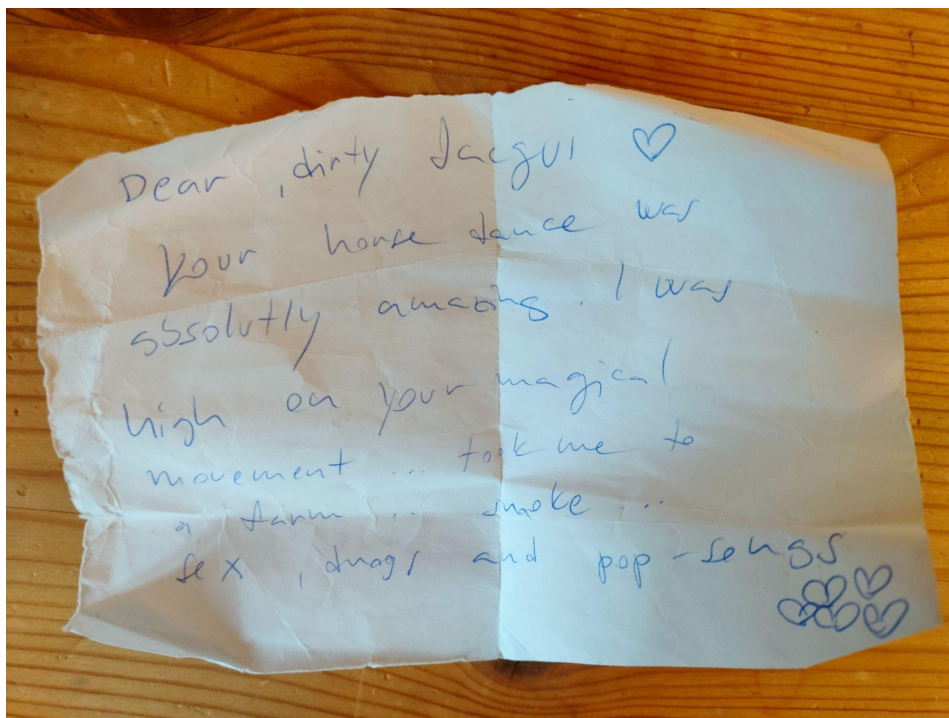 Dear , dirty Jacqui ♡
Your horse dance was
absolutly amazing. I was
high on your magical
movement ... took me to
a farm .. smoke ..
sex , drugs and pop-songs